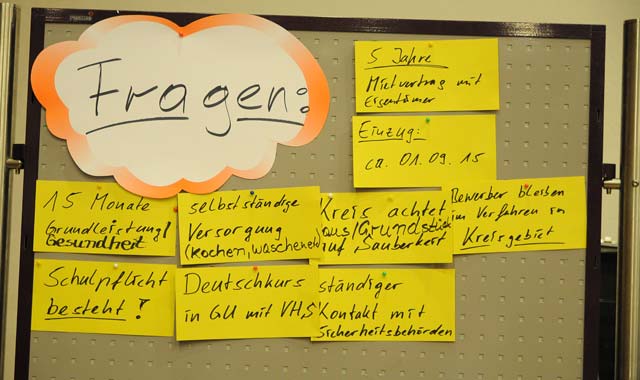 Fragen:
5 Jahre
Mietvertrag mit
Eigentümer
Einzug:
ca. 01.09.15
15 Monate
Grundleistung/
Gesundheit
selbstständige
Versorgung
(kochen, waschen etc)
Kreis achtet
aus/Grundstück
auf Sauberkeit
Bewerber bleiben
im Verfahren in
Kreisgebiet
Schulpflicht
besteht!
Deutschkurs
in GU mit VHS
ständiger
Kontakt mit
Sicherheitsbehörden